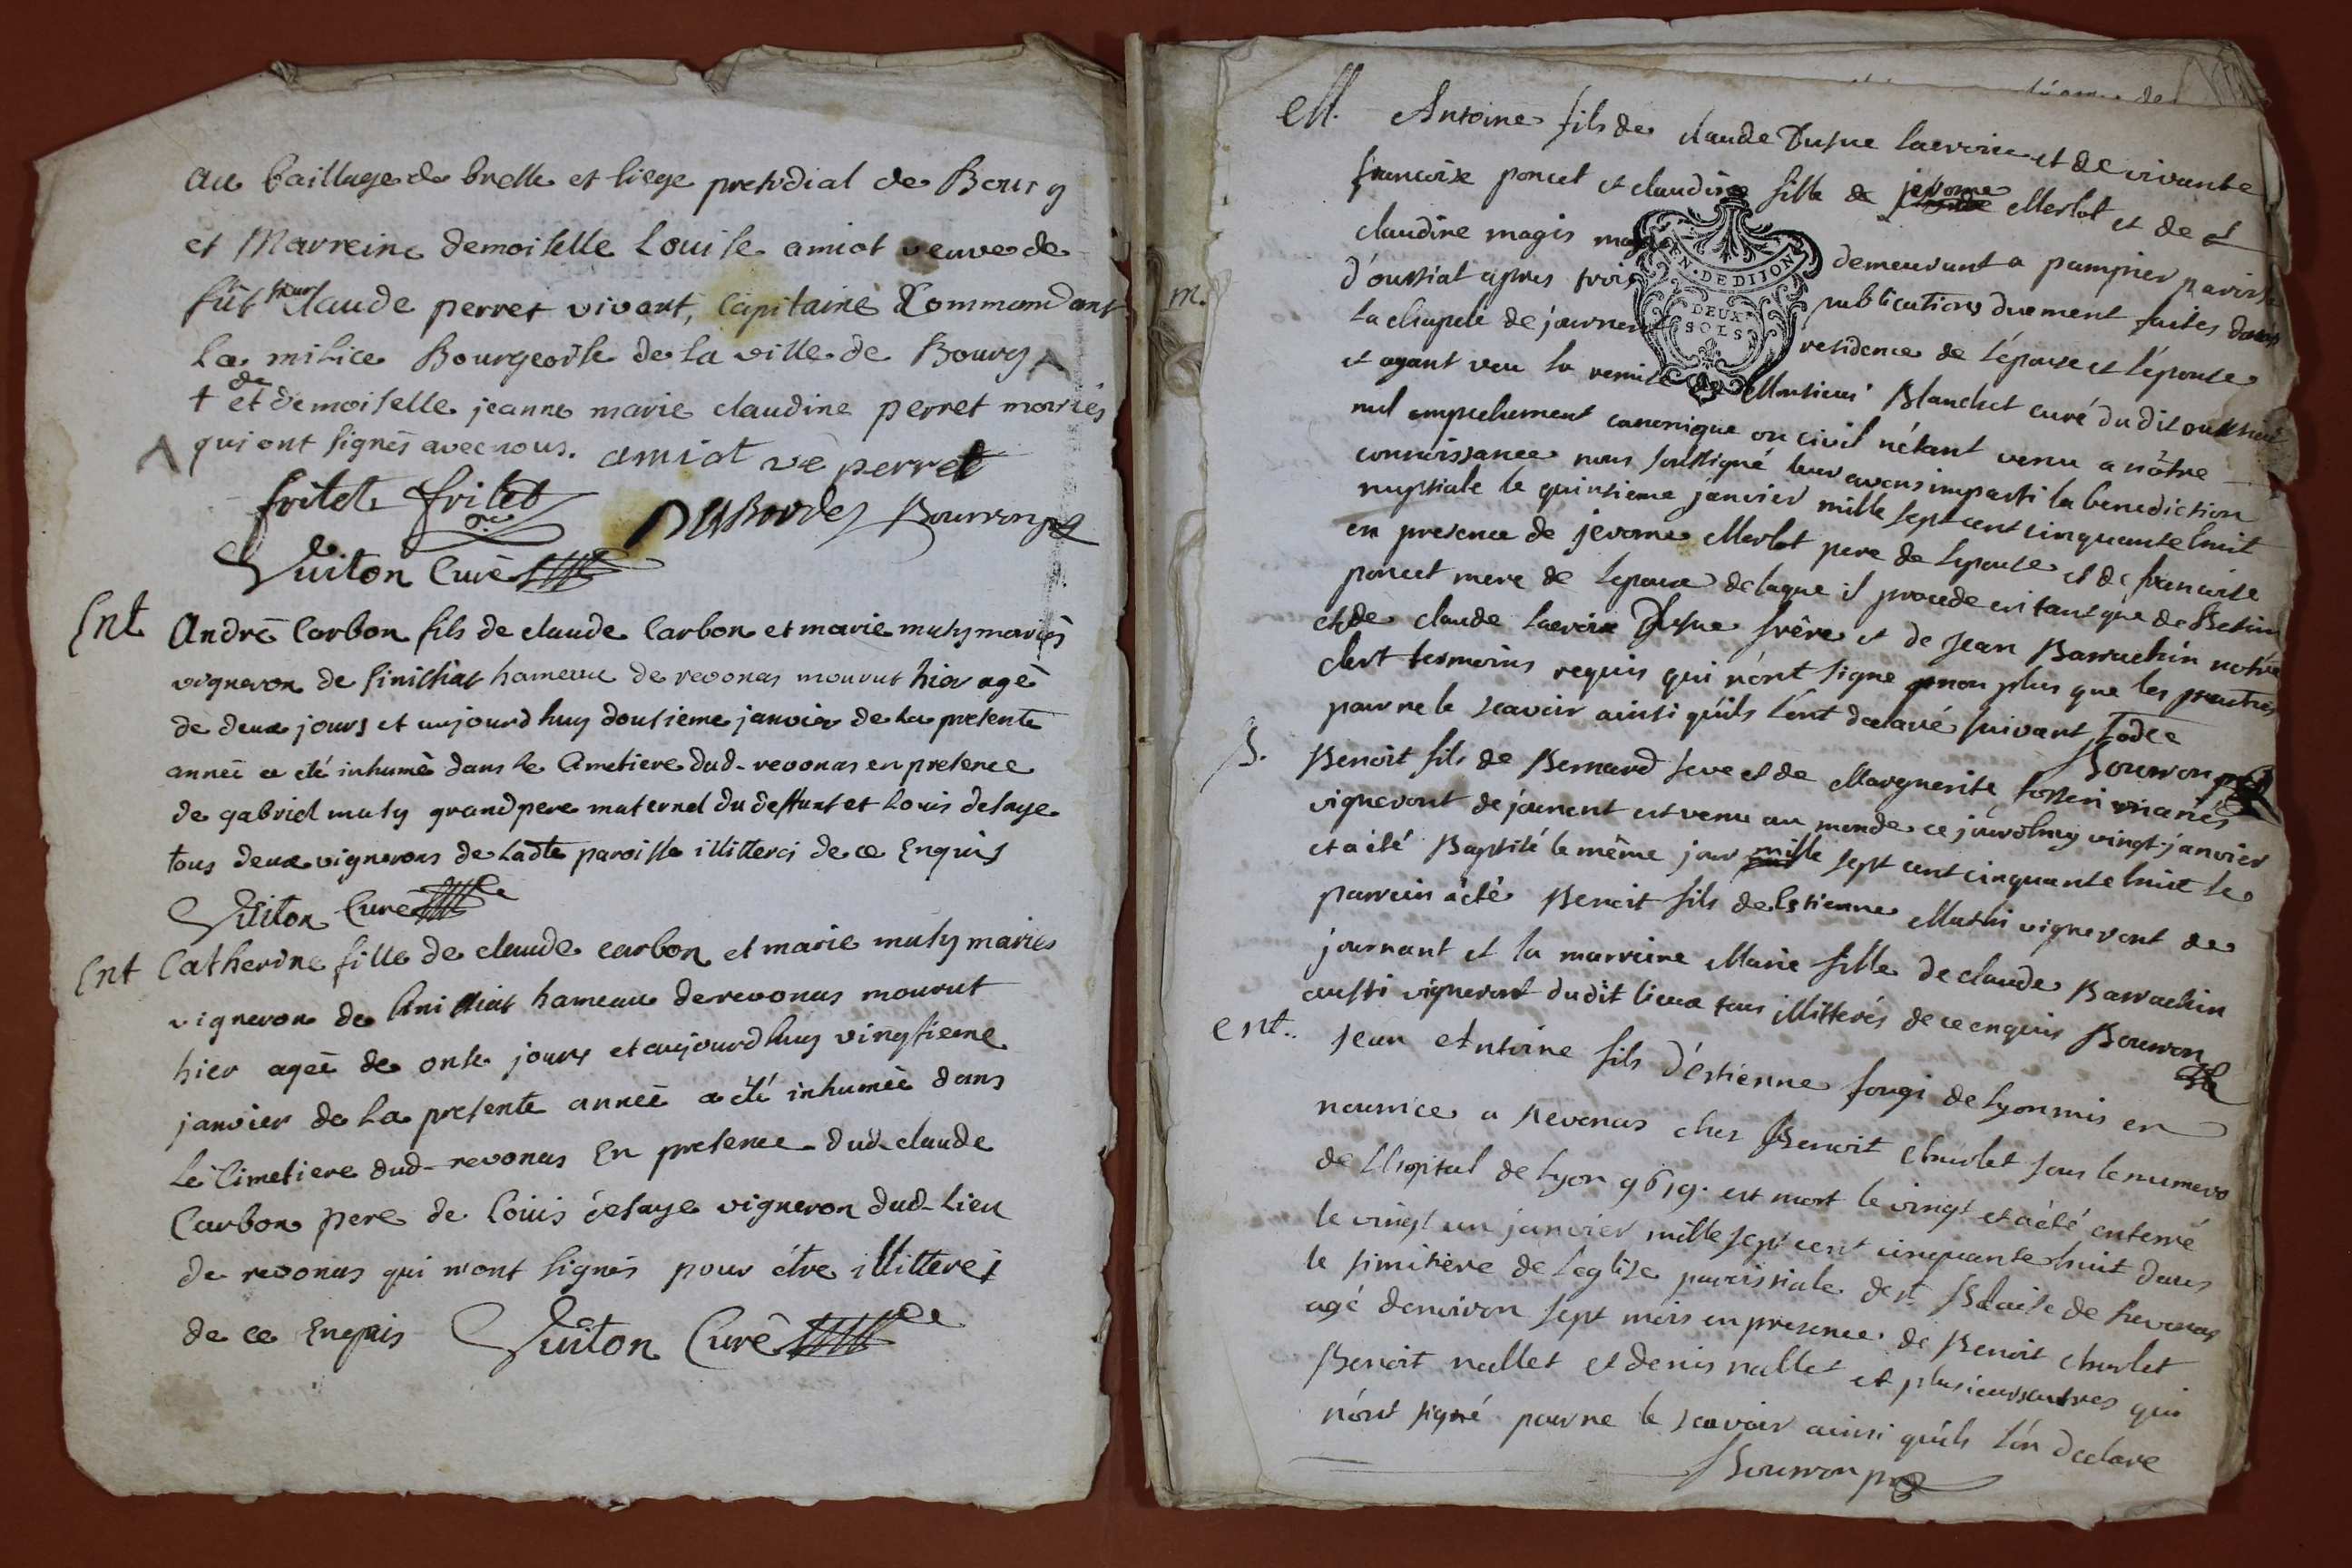 au baillage de bresse et siege presidial de Bourg
et Marreine demoiselle Louise amiot veuve de
fût sieur Claude perret vivant, Capitaine Commandant
la milice Bourgeoise de la ville de Bourg A
+ et de demoiselle jeanne marie claudine perret mariés
A qui ont signés avec nous. amiot ve perret
fritet fritet
DesBordes Bourron
Guiton Curé
Ent André Carbon fils de claude Carbon et marie muty mariés
vigneron de hameau de revonas mourut hier agé
de deux jours et aujourdhuy dousieme janvier de la presente
anneé a été inhumé dans le Cimetiere dud. revonas en presence
de gabriel muty grand pere maternel du deffunt et Louis desaye
tous deux vignerons de Ladte paroisse illitteréz de ce Enquis
Guiton Curé
Ent Catherine fille de claude carbon et marie muty mariés
vigneron de hameau de revonas mourut
hier ageé de onse jours et aujourdhuy vingtieme
janvier de la presente anneé a été inhumeé dans
le Cimetiere dud. revonas En presence dud. claude
Carbon pere de Louis desaye vigneron dud. Lieu
de revonas qui n'ont signés pour étre illitterez
de ce Enquis Guiton Curé
m.
M. Antoine fils de claude Dufue lacroix et de vivante
francoise poncet et claudine fille de jerome Merlot et de
claudine magis demeurant a pampier paroisse
d'oussiat apres trois publications duement faites dans
la chapele de journent residence de l'epoux et l'epouse
et ayant veu la remise de Monsieur Blanchet curé dudit oussiat
nul empechement canonique ou civil n'étant venu a nôtre
connoissance nous soussigné leur avons imparti la benediction
nuptiale le quinsieme janvier mille sept cent cinquante huit
en presence de jerome Merlot pere de lepouse et de francoise
poncet mere de lepoux delaque il procede en tant que de Besoin
et de claude lacroix Dufue frère et de Jean Barrachin notre
clert temoins requis qui n'ont signe non plus que les
pour ne le scavoir ainsi qu'ils l'ont declaré suivant
Bourron
B. Benoit fils de Bernard seve et de Marguerite mariés
vigneront de journent est venu au monde ce jourdhuy vingt janvier
et a été Baptisé le même jour mille sept cent cinquante huit le
parrein a été Benoit fils de Estienne Mathi vigneront de
journant et la marreine Marie fille de claude Barrachin
aussi vigneront dudit lieux tous illitterés de ce enquis Bourron
ent. Jean Antoine fils d'éstienne fougi de Lyon mis en
nourrice a Revonas ches Benoit Churlet sous le numero
de L'hopital de Lyon 9619. est mort le vingt et a été enterré
le vingt un janvier mille sept cent cinquante huit dans
le simitiére de leglise paroissiale de st Blaise de Revonas
agé denviron sept mois en presence de Benoit Churlet
Benoit nallet et denis nallet et plusieurs autres qui
n'ont signé pour ne le scavoir ainsi qu'ils l'on declare
Bourron
GEN. DE DIJON
DEUX
SOLS